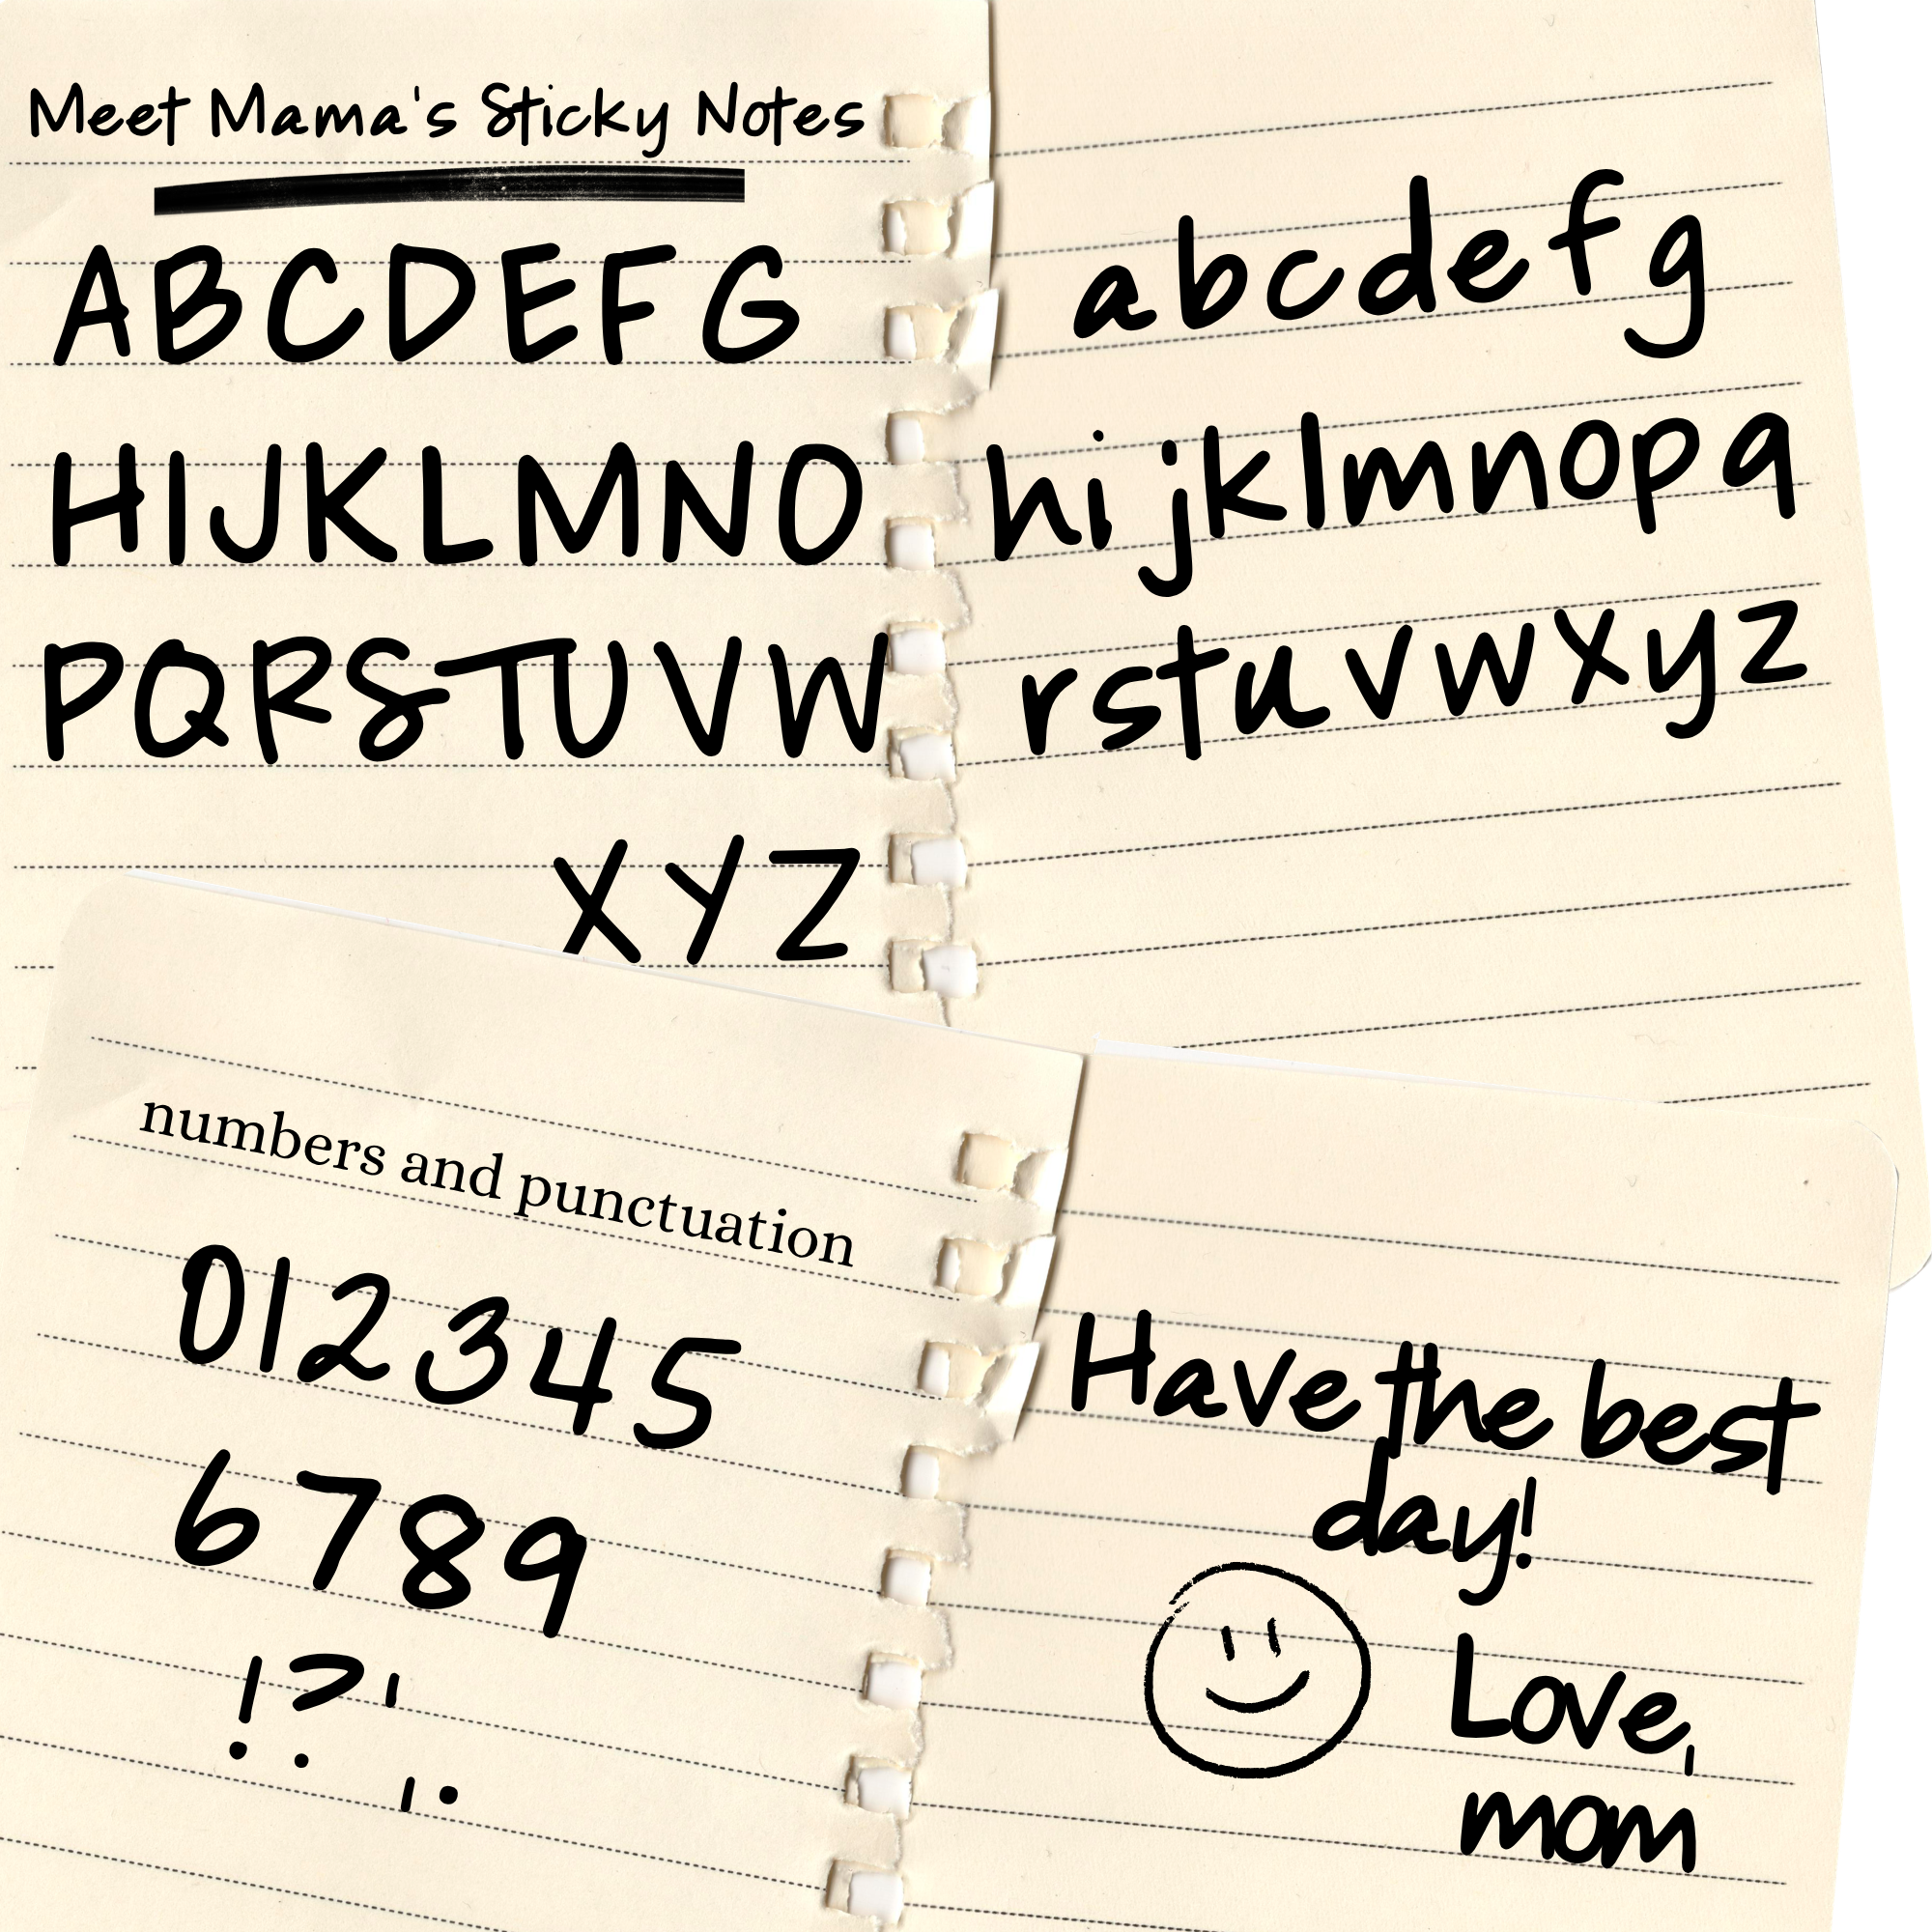 Meet Mama's Sticky Notes
A B C D E F G
H I J K L M N O
P Q R S T U V W
X Y Z
a b c d e f g
h i j k l m n o p q
r s t u v w x y z
numbers and punctuation
0 1 2 3 4 5
6 7 8 9
! ? ' , .
Have the best
day!
Love,
mom